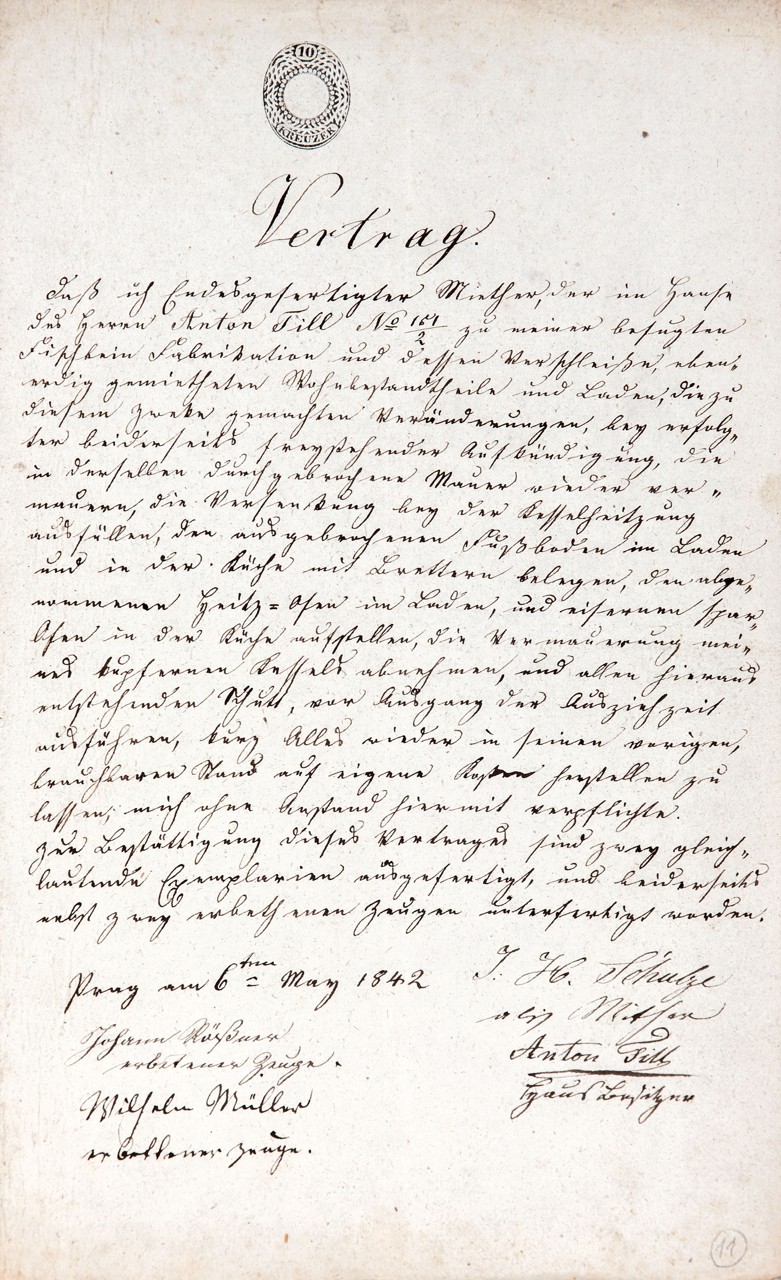 10
KREUZER
Vertrag.
Daß ich Endesgefertigter Miether, der im Hause
des Herrn Anton Till No 151/2 zu meiner befugten
Fischbein Fabrikation und dessen Verschleiße, eben„
erdig gemietheten Wohnbestandtheile und Laden, die zu
diesem Zweke gemachten Veränderungen, bey erfolg„
ter beiderseits freystehender Aufkündigung, die
in derselben durchgebrochene Mauer wieder ver„
mauern, die Versenkung bey der Kesselheitzung
ausfüllen, den ausgebrochenen Fußboden im Laden
und in der Küche mit Brettern belegen, den abge„
nommenen Heitz=Ofen im Laden, und eisernen Spar„
Ofen in der Küche aufstellen, die Vermauerung mei„
nes kupfernen Kessels abnehmen, und allen hieraus
entstehenden Schutt, vor Ausgang der Ausziehzeit
ausführen, kurz Alles wieder in seinen vorigen,
brauchbaren Stand auf eigene Kosten herstellen zu
lassen, mich ohne Anstand hiermit verpflichte.
Zur Bestättigung dieses Vertrages sind zwey gleich„
lautende Exemplarien ausgefertigt, und beiderseits
nebst zwey erbethenen Zeugen unterfertigt worden.
Prag am 6ten May 1842
J. H. Schulze
als Miether
Johann Rößner
erbetener Zeuge.
Anton Till
Hausbesitzer
Wilhelm Müller
erbettener Zeuge.
11